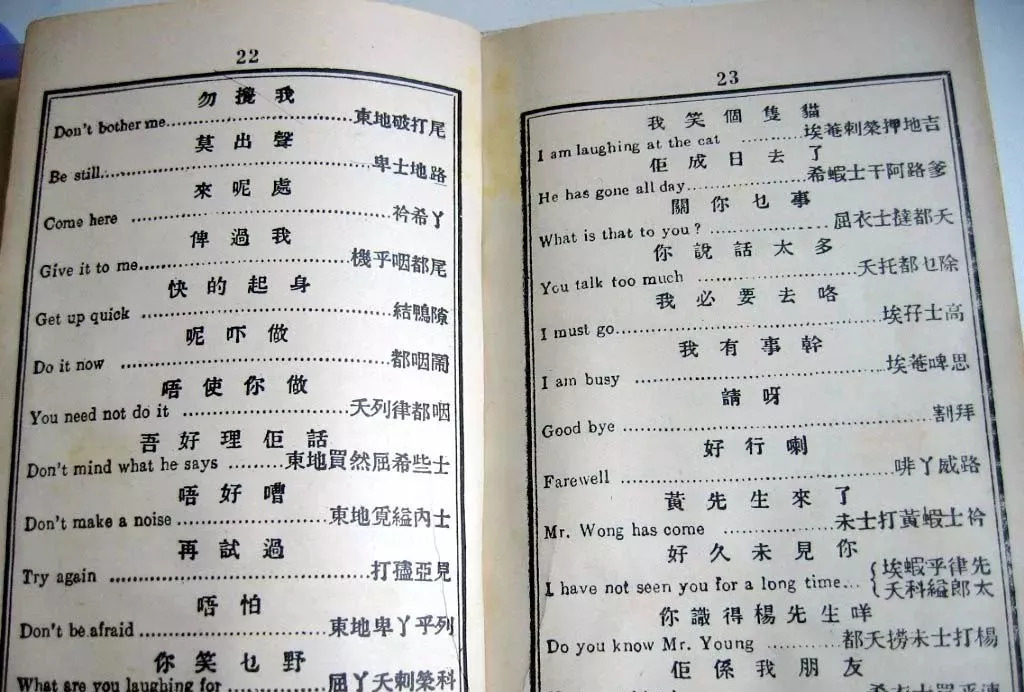 22
勿攪我
Don't bother me............東地破打尾
莫出聲
Be still............卑士地路
來呢處
Come here............衿希丫
俾過我
Give it to me............機乎咽都尾
快的起身
Get up quick............結鴨隙
呢吓做
Do it now............都咽閙
唔使你做
You need not do it............天列律都咽
吾好理佢話
Don't mind what he says............東地買然屈希些士
唔好嘈
Don't make a noise............東地覓縊內士
再試過
Try again............打孻亞見
唔怕
Don't be afraid............東地卑丫乎列
你笑乜野
What are you laughing for............屈丫天剌榮科
23
我笑個隻貓
I am laughing at the cat............埃菴剌榮押地吉
佢成日去了
He has gone all day............希蝦士干阿路爹
關你乜事
What is that to you?............屈衣士撻都天
你說話太多
You talk too much............天托都乜除
我必要去咯
I must go............埃孖士高
我有事幹
I am busy............埃菴啤思
請呀
Good bye............割拜
好行喇
Farewell............啡丫威路
黃先生來了
Mr. Wong has come............未士打黃蝦士衿
好久未見你
I have not seen you for a long time...{埃蝦乎律先
{天科縊郎太
你識得楊先生咩
Do you know Mr. Young............都天撈未士打楊
佢係我朋友